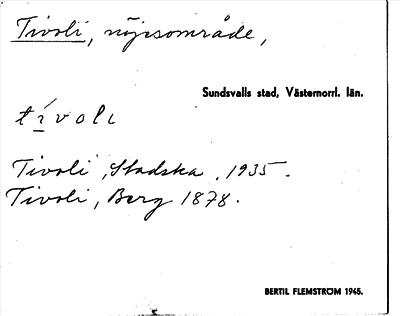 Tivoli, nöjesområde,
Sundsvalls stad, Västernorrl. län.
tívoli
Tivoli, Stadska, 1935.
Tivoli, Berg 1878.
BERTIL FLEMSTRÖM 1945.